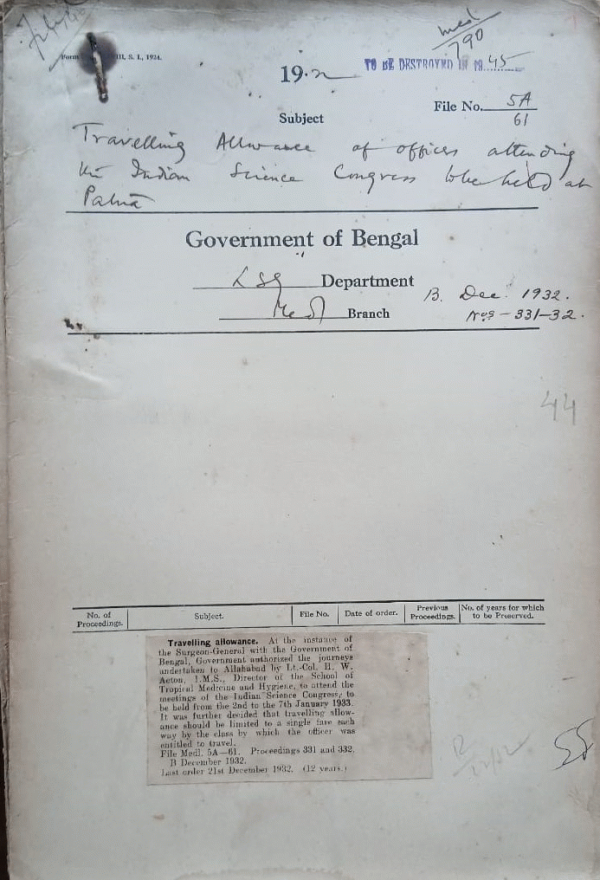 Medl
790
Form III, S. I., 1924.
TO BE DESTROYED IN 1945
19
File No. 5A
61
Subject
Travelling Allowance of officers attending
the Indian Science Congress to be held at
Patna
Government of Bengal
LSG Department
Medl Branch
B. Dec. 1932.
Nos - 331-32.
44
No. of Proceedings. Subject. File No. Date of order. Previous Proceedings. No. of years for which to be Preserved.
Travelling allowance. At the instance of
the Surgeon-General with the Government of
Bengal, Government authorized the journeys
undertaken to Allahabad by Lt.-Col. H. W.
Acton, I.M.S., Director of the School of
Tropical Medicine and Hygiene, to attend the
meetings of the Indian Science Congress, to
be held from the 2nd to the 7th January 1933.
It was further decided that travelling allow-
ance should be limited to a single fare each
way by the class by which the officer was
entitled to travel.
File Medl. 5A—61. Proceedings 331 and 332.
B December 1932.
Last order 21st December 1932. (12 years.)